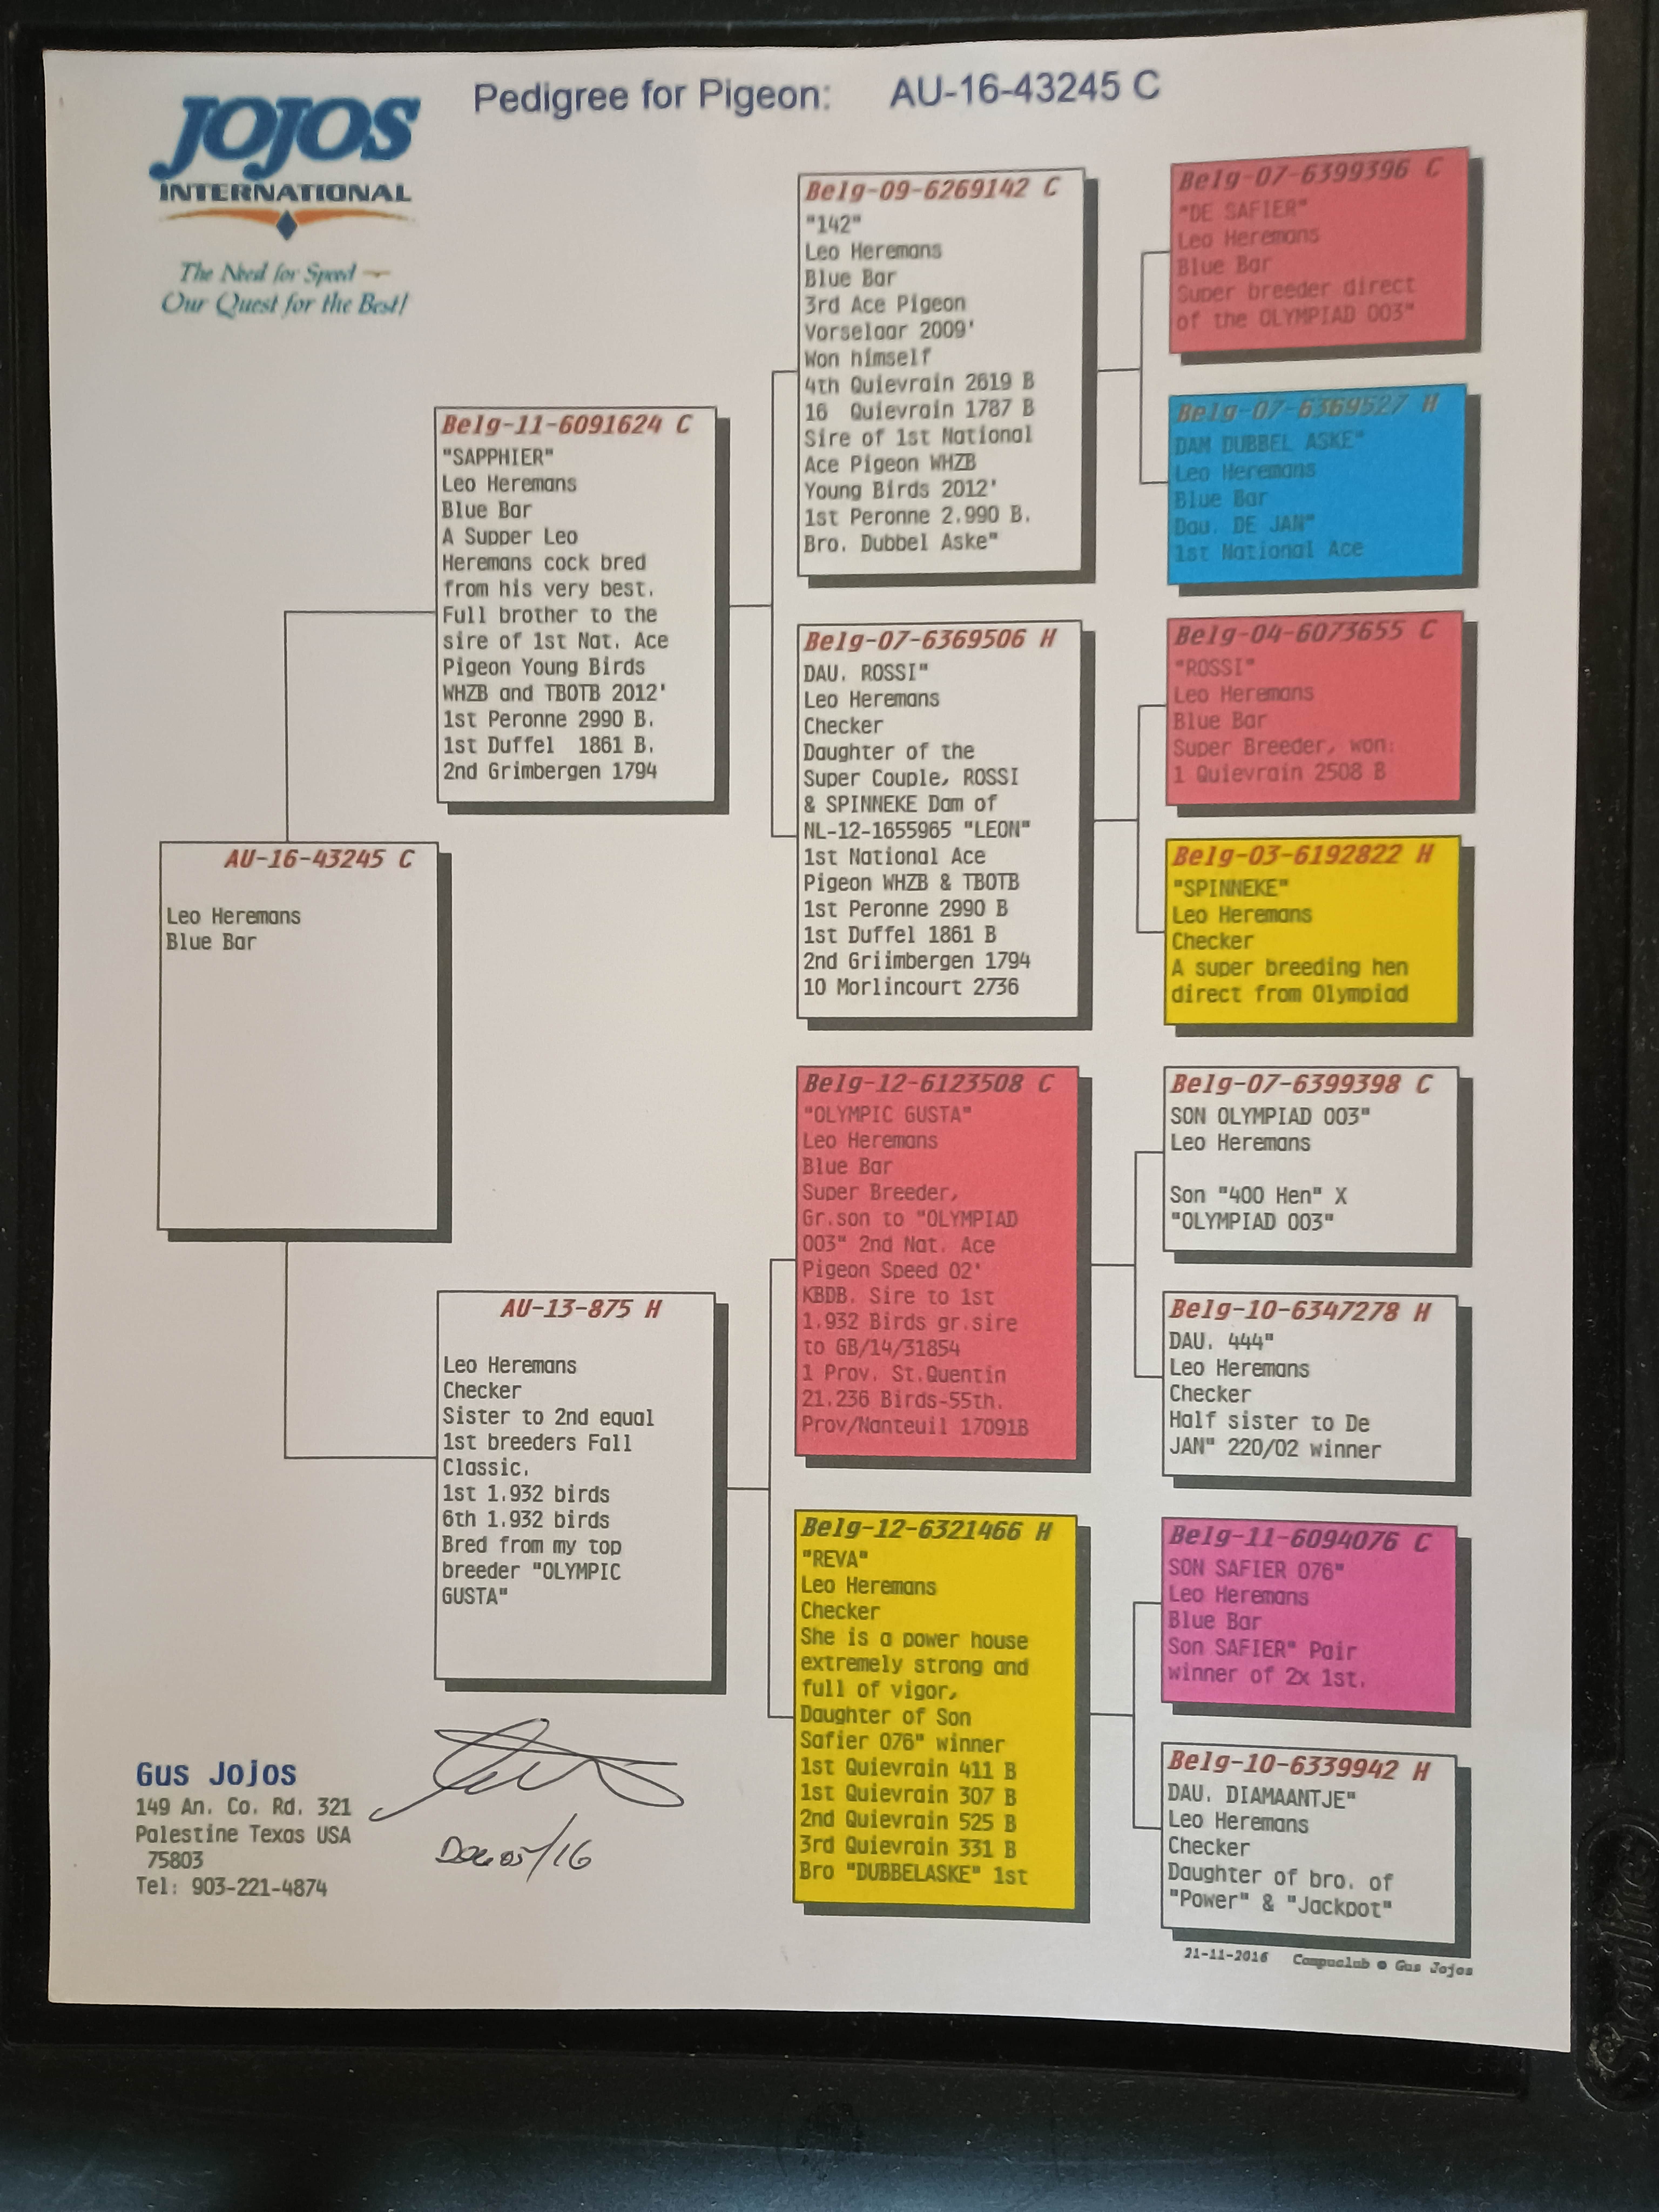 JOJOS
INTERNATIONAL
The Need for Speed
Our Quest for the Best!
Pedigree for Pigeon: AU-16-43245 C
AU-16-43245 C
Leo Heremans
Blue Bar
Belg-11-6091624 C
"SAPPHIER"
Leo Heremans
Blue Bar
A Supper Leo
Heremans cock bred
from his very best.
Full brother to the
sire of 1st Nat. Ace
Pigeon Young Birds
WHZB and TBOTB 2012'
1st Peronne 2990 B.
1st Duffel 1861 B.
2nd Grimbergen 1794
AU-13-875 H
Leo Heremans
Checker
Sister to 2nd equal
1st breeders Fall
Classic.
1st 1.932 birds
6th 1.932 birds
Bred from my top
breeder "OLYMPIC
GUSTA"
Belg-09-6269142 C
"142"
Leo Heremans
Blue Bar
3rd Ace Pigeon
Vorselaar 2009'
Won himself
4th Quievrain 2619 B
16 Quievrain 1787 B
Sire of 1st National
Ace Pigeon WHZB
Young Birds 2012'
1st Peronne 2.990 B.
Bro. Dubbel Aske"
Belg-07-6369506 H
DAU. ROSSI"
Leo Heremans
Checker
Daughter of the
Super Couple, ROSSI
& SPINNEKE Dam of
NL-12-1655965 "LEON"
1st National Ace
Pigeon WHZB & TBOTB
1st Peronne 2990 B
1st Duffel 1861 B
2nd Griimbergen 1794
10 Morlincourt 2736
Belg-12-6123508 C
"OLYMPIC GUSTA"
Leo Heremans
Blue Bar
Super Breeder,
Gr.son to "OLYMPIAD
003" 2nd Nat. Ace
Pigeon Speed 02'
KBDB. Sire to 1st
1.932 Birds gr.sire
to GB/14/31854
1 Prov. St.Quentin
21.236 Birds-55th.
Prov/Nanteuil 17091B
Belg-12-6321466 H
"REVA"
Leo Heremans
Checker
She is a power house
extremely strong and
full of vigor,
Daughter of Son
Safier 076" winner
1st Quievrain 411 B
1st Quievrain 307 B
2nd Quievrain 525 B
3rd Quievrain 331 B
Bro "DUBBELASKE" 1st
Belg-07-6399396 C
"DE SAFIER"
Leo Heremans
Blue Bar
Super breeder direct
of the OLYMPIAD 003"
Belg-07-6369527 H
DAM DUBBEL ASKE"
Leo Heremans
Blue Bar
Dau. DE JAN"
1st National Ace
Belg-04-6073655 C
"ROSSI"
Leo Heremans
Blue Bar
Super Breeder, won:
1 Quievrain 2508 B
Belg-03-6192822 H
"SPINNEKE"
Leo Heremans
Checker
A super breeding hen
direct from Olympiad
Belg-07-6399398 C
SON OLYMPIAD 003"
Leo Heremans
Son "400 Hen" X
"OLYMPIAD 003"
Belg-10-6347278 H
DAU. 444"
Leo Heremans
Checker
Half sister to De
JAN" 220/02 winner
Belg-11-6094076 C
SON SAFIER 076"
Leo Heremans
Blue Bar
Son SAFIER" Pair
winner of 2x 1st.
Belg-10-6339942 H
DAU. DIAMAANTJE"
Leo Heremans
Checker
Daughter of bro. of
"Power" & "Jackpot"
Gus Jojos
149 An. Co. Rd. 321
Palestine Texas USA
75803
Tel: 903-221-4874
21-11-2016 Compuclub © Gus Jojos